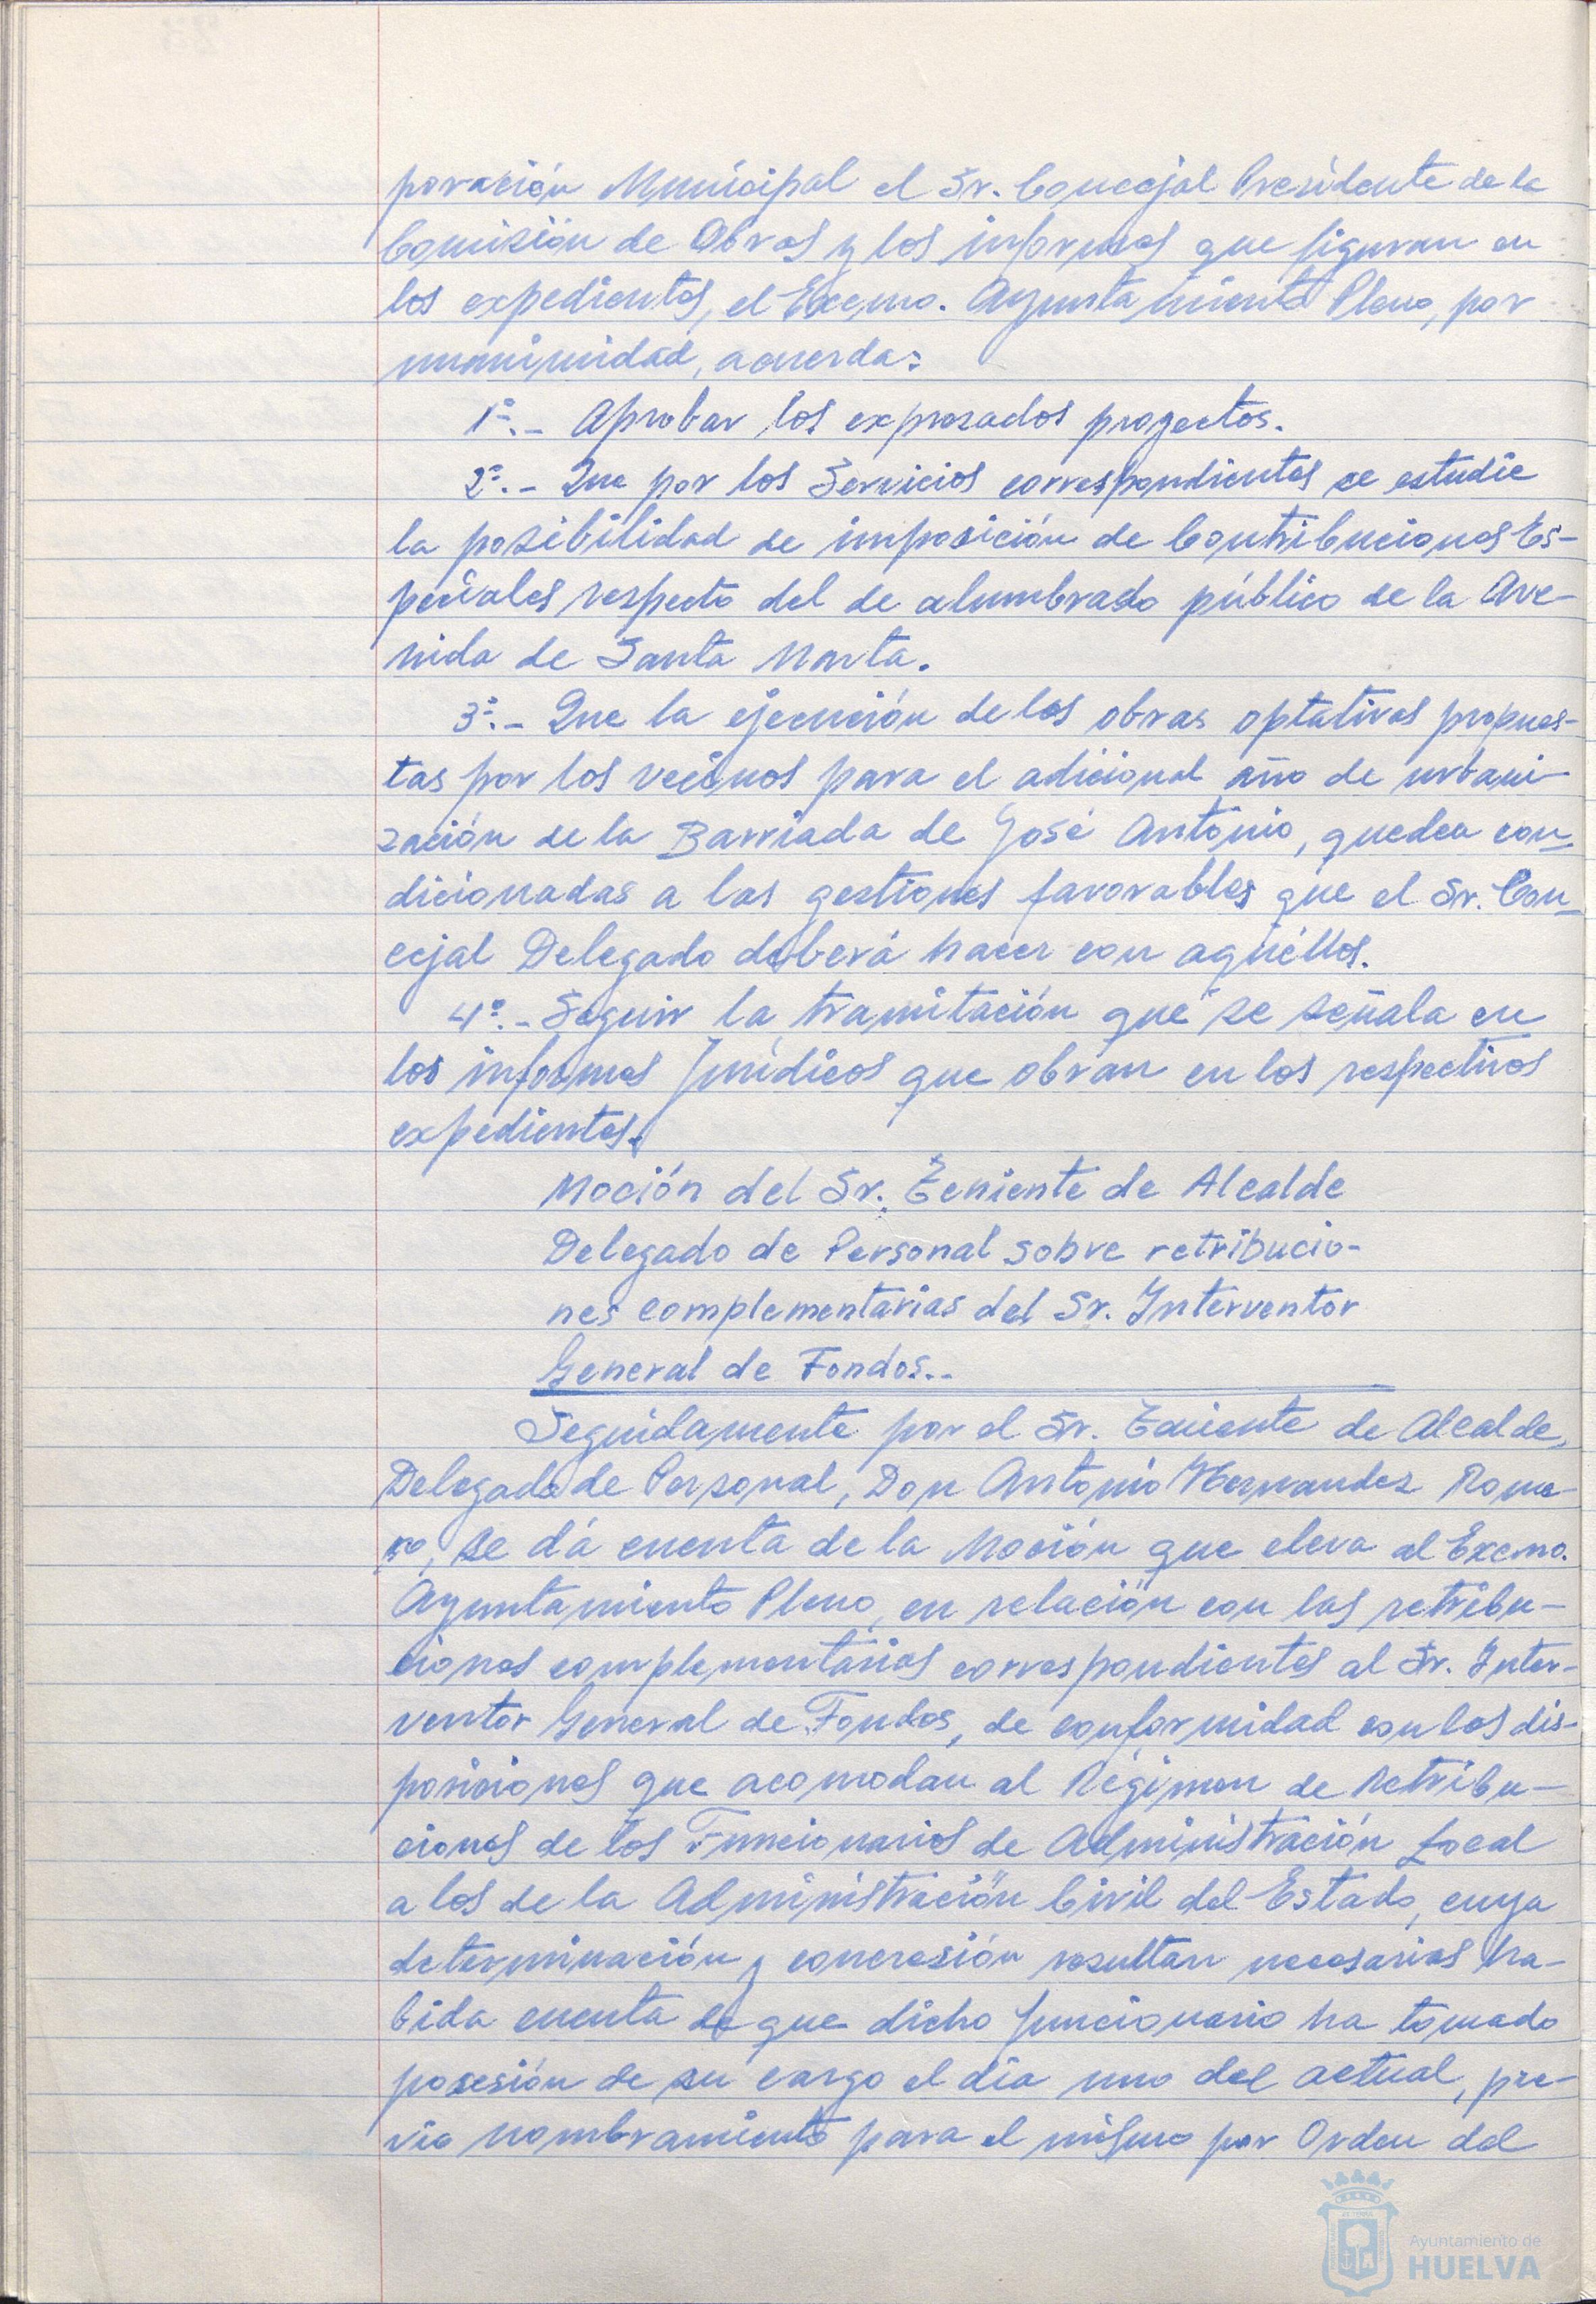 poración Municipal el Sr. Concejal Presidente de la
Comisión de Obras y los informes que figuran en
los expedientes, el Excmo. Ayuntamiento Pleno, por
unanimidad, acuerda:
1º.- Aprobar los expresados proyectos.
2º.- Que por los Servicios correspondientes se estudie
la posibilidad de imposición de Contribuciones Es-
peciales respecto del de alumbrado público de la Ave-
nida de Santa Marta.
3º.- Que la ejecución de las obras optativas propues-
tas por los vecinos para el adicional año de urbani-
zación de la Barriada de José Antonio, quedea con-
dicionadas a las gestiones favorables que el Sr. Con-
cejal Delegado deberá hacer con aquéllos.
4º.- Seguir la tramitación que se señala en
los informes Jurídicos que obran en los respectivos
expedientes.
Moción del Sr. Teniente de Alcalde
Delegado de Personal sobre retribucio-
nes complementarias del Sr. Interventor
General de Fondos.-
Seguidamente por el Sr. Teniente de Alcalde,
Delegado de Personal, Don Antonio Hernandez Rome-
ro, se dá cuenta de la Moción que eleva al Excmo.
Ayuntamiento Pleno, en relación con las retribu-
ciones complementarias correspondientes al Sr. Inter-
ventor General de Fondos, de conformidad con las dis-
posiciones que acomodan al Régimen de Retribu-
ciones de los Funcionarios de Administración Local
a los de la Administración Civil del Estado, cuya
determinación y concresión resultan necesarias ha-
bida cuenta de que dicho funcionario ha tomado
posesión de su cargo el día uno del actual, pre-
vio nombramiento para el mismo por Orden del
Ayuntamiento de
HUELVA